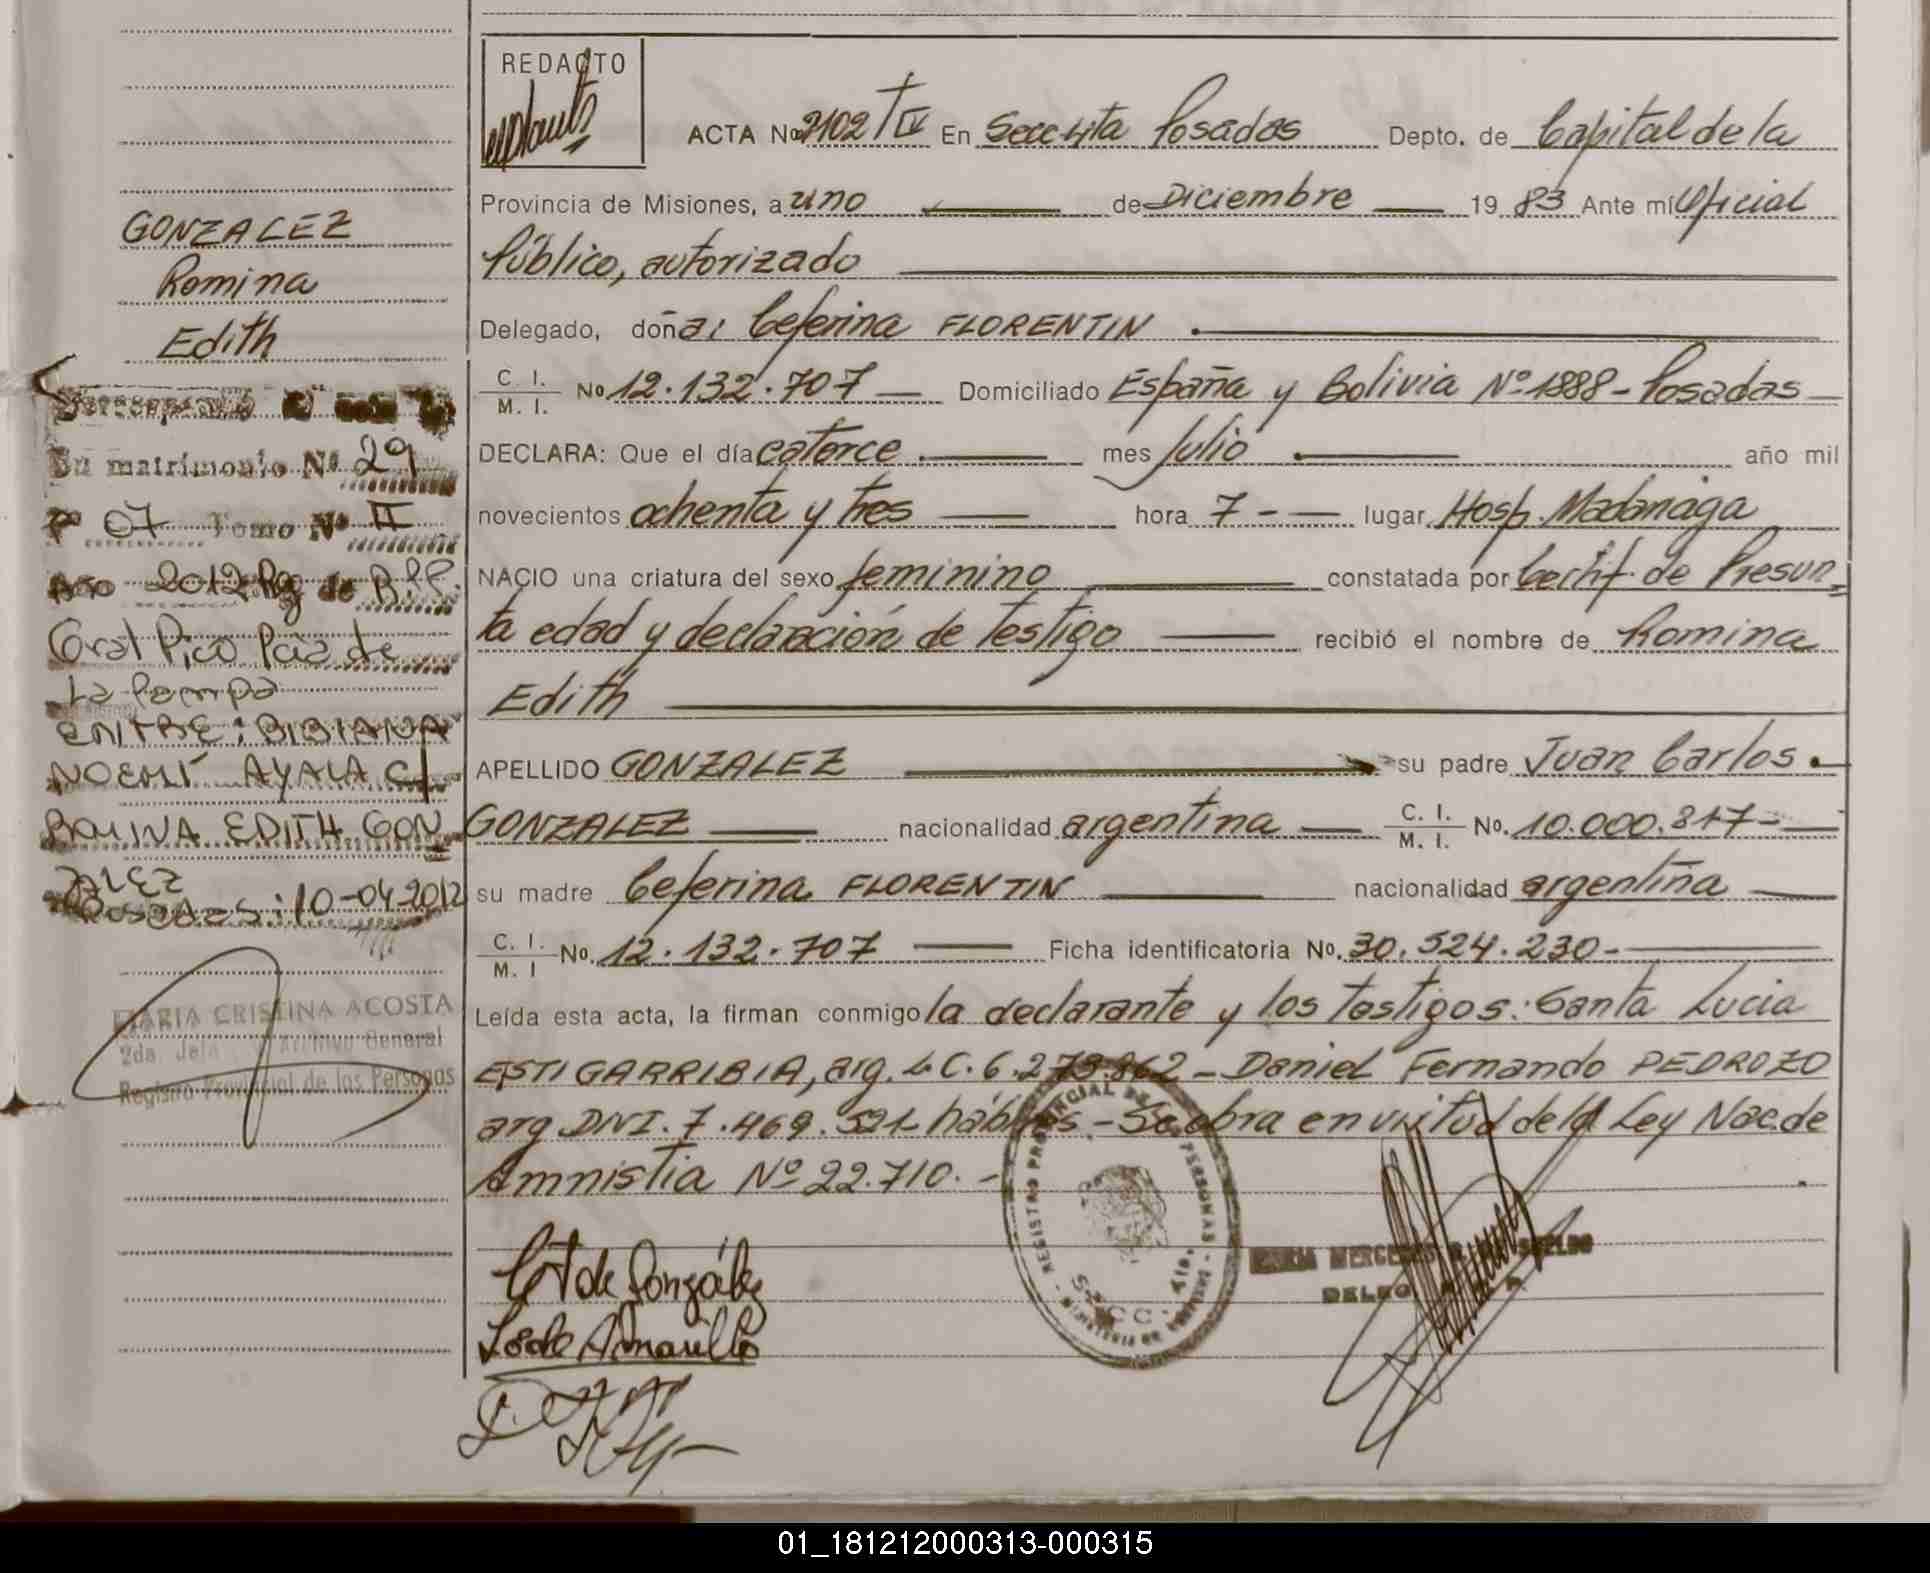 REDACTO
ACTA No 2102 TIV En Secc 4ta Posadas Depto. de Capital de la
Provincia de Misiones, a uno de Diciembre 19 83 Ante mí Oficial
Público, autorizado
Delegado, doña: Ceferina FLORENTIN
C. I. M. I. No 12.132.707 Domiciliado España y Bolivia Nº 1888 - Posadas
DECLARA: Que el día catorce mes Julio año mil
novecientos ochenta y tres hora 7 - lugar Hosp. Madariaga
NACIO una criatura del sexo feminino constatada por Certif. de Presun
ta edad y declaración de testigo recibió el nombre de Romina
Edith
APELLIDO GONZALEZ su padre Juan Carlos
GONZALEZ nacionalidad argentina C. I. M. I. No. 10.000.817
su madre Ceferina FLORENTIN nacionalidad argentina
C. I. M. I No. 12.132.707 Ficha identificatoria No. 30.524.230-
Leída esta acta, la firman conmigo la declarante y los testigos: Santa Lucia
ESTIGARRIBIA, arg. L C. 6.273.862 - Daniel Fernando PEDROZO
arg DNI. 7.469.521 hábiles - Se obra en virtud de la Ley Nac. de
Amnistia Nº 22.710.-
GONZALEZ
Romina
Edith
Su matrimonio Nº 29
Fº 07 Tomo Nº II
Año 2012 Reg de
Gral Pico Pcia de
La Pampa
ENTRE: BIBIANA
NOEMÍ AYALA C/
ROMINA EDITH GON
ZALEZ
POSADAS: 10-04-2012
MARIA CRISTINA ACOSTA
2da Jefa Archivo General
Registro Provincial de las Personas
REGISTRO PROVINCIAL DE LAS PERSONAS
MARIA MERCEDES
01_181212000313-000315